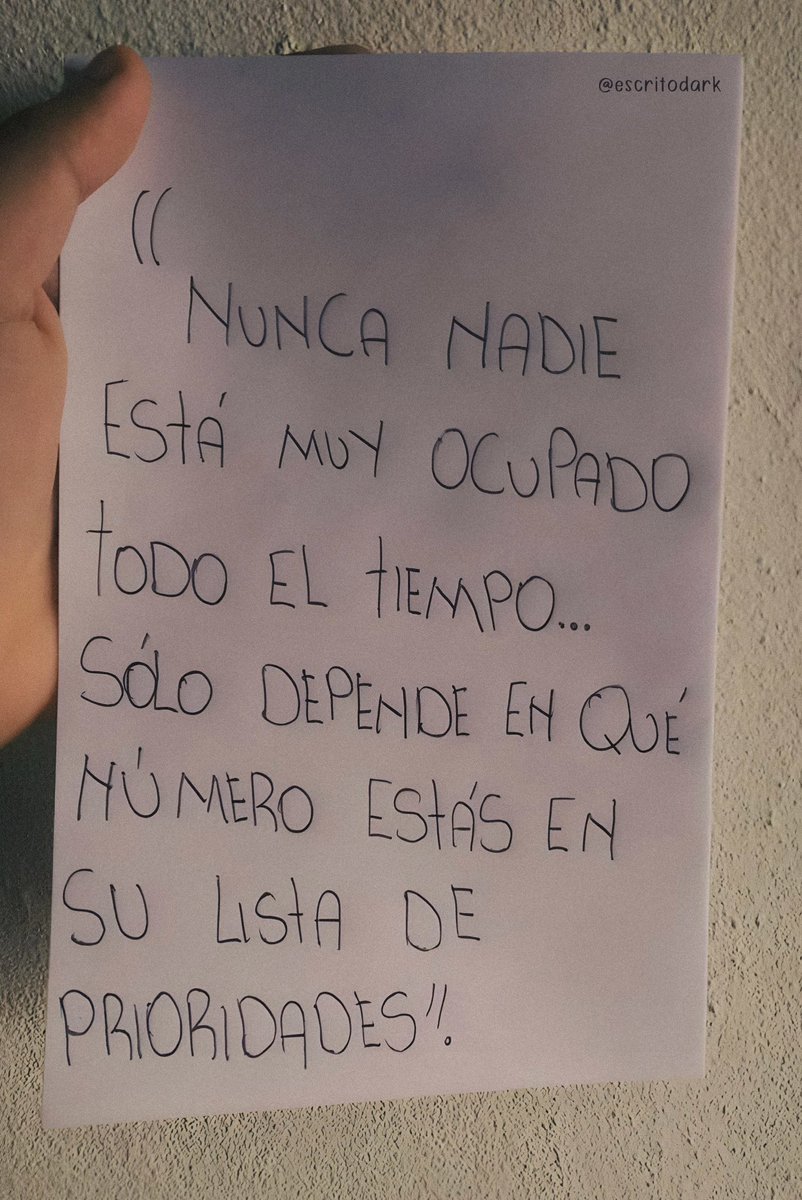 @escritodark
"
NUNCA NADIE
ESTÁ MUY OCUPADO
TODO EL TIEMPO...
SÓLO DEPENDE EN QUÉ
NÚMERO ESTÁS EN
SU LISTA DE
PRIORIDADES".